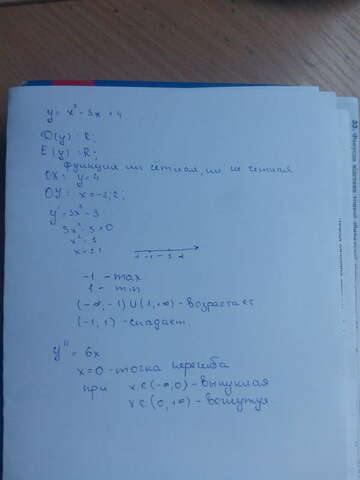 y = x³ - 3x + 4
D(y) = R;
E(y) = R;
функция ни четная, ни не четная
OX: y = 4
OY: x = -2,2;
y' = 3x² - 3
3x² - 3 = 0
x² = 1
x = ±1
-1 - max
1 - min
(-∞, -1) U (1, +∞) - возрастает
(-1, 1) - спадает.
y'' = 6x
x = 0 - точка перегиба
при x ∈ (-∞, 0) - выпуклая
x ∈ (0, +∞) - вогнутая